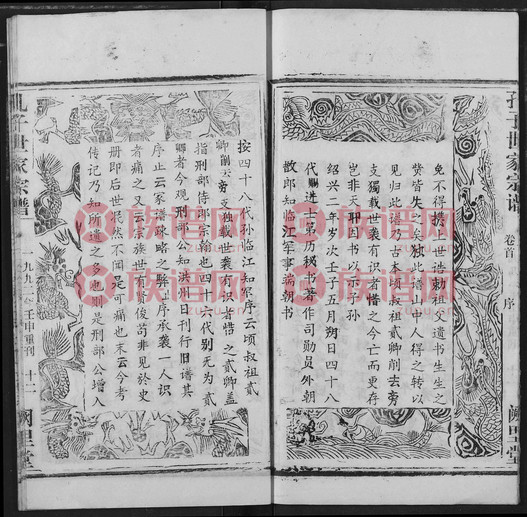 孔子世家宗谱
卷首
序
阙里堂
免不得携上世诰勅祖父遗书生生之
赞皆失之矣独此谱山中人得之转以
见归此谱乃古本顷叔祖贰卿削去旁
支独载世袭有识者惜之今亡而更存
岂非天耶因书以示子孙
绍兴二年岁次壬子五月朔日四十八
代赐进士第历秘书著作司勋员外朝
散郎知临江军事端朝书
按四十八代孙临江知军序云顷叔祖贰
卿削去旁支独载世袭有识者惜之贰卿盖
指刑部侍郎宗翰也四十六代别无为贰
卿者今观刑部公知洪州日刊行旧谱其
序止云家谱咏略之弊序承袭一人识
者痛之又云宗族世有贤俊苟非见於史
册即后世泯然不闻是可痛也末云今考
传记乃知所遗之多也则是刑部公增入
孔子世家宗谱
壬申重刊
十二
阙里堂
族谱网
zupu.cn